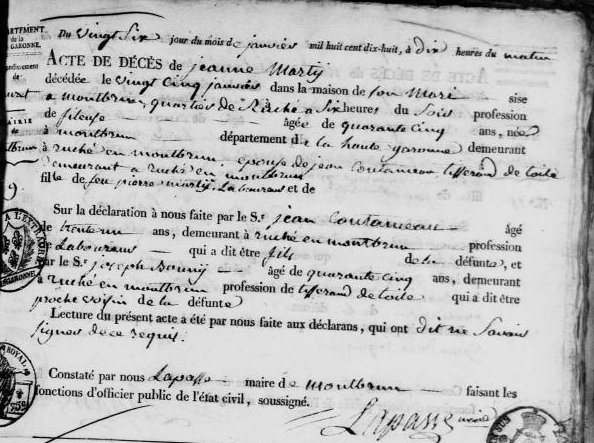 DÉPARTEMENT
de la
GARONNE.
Du vingt Six jour du mois de janvier mil huit cent dix-huit, à dix heures du matin
ACTE DE DÉCÈS de jeanne Marty
décédée le vingt cinq janvier dans la maison de son Mari sise
a montbrun, quartier de Ruché a Six heures du Soir profession
de fileuse âgée de quarante cinq ans, née
à montbrun département de la haute garonne demeurant
à ruché en montbrun, epouse de jean Coutanceau tisserand de toile
demeurant a ruché en montbrun
fille de feu pierre marty, Laboureur et de
9.
Sur la déclaration à nous faite par le S.r jean Coutanceau âgé
de trente un ans, demeurant à ruché en montbrun profession
de Laboureur qui a dit être fils de la défunte, et
par le S.r joseph âgé de quarante cinq ans, demeurant
a ruché en montbrun profession de tisserand de toile qui a dit être
proche voisin de la défunte
Lecture du présent acte a été par nous faite aux déclarans, qui ont dit ne Savoir
signer de ce requis.
Constaté par nous Lapasse maire de montbrun faisant les
fonctions d'officier public de l'état civil, soussigné.
Lapasse maire